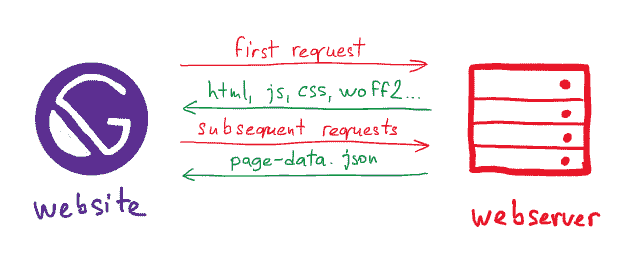 first request
html, js, css, woff2...
subsequent requests
page-data.json
website
webserver